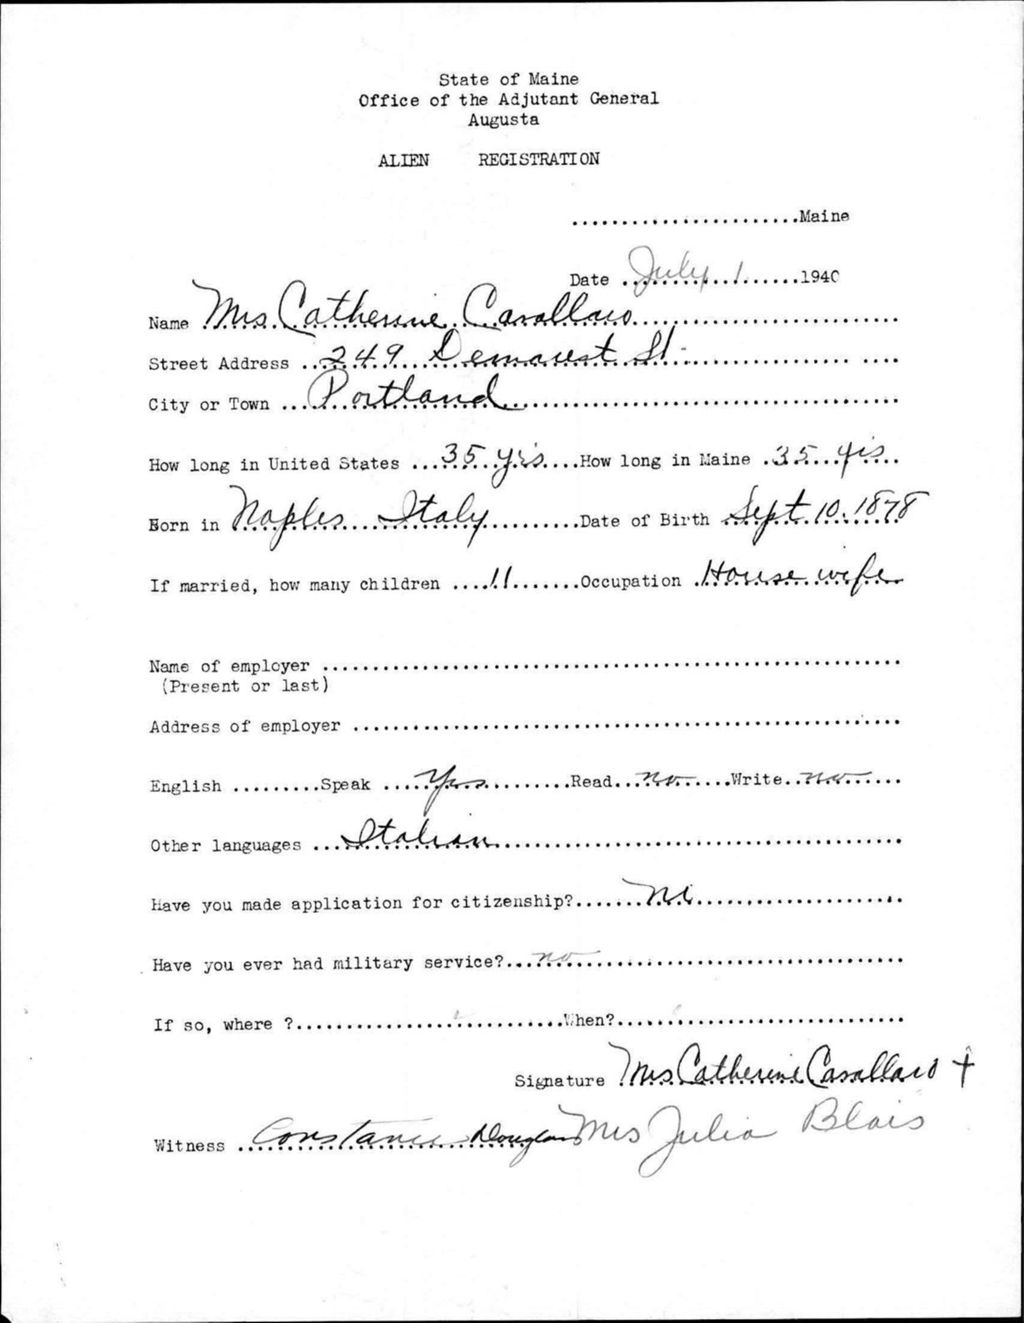 State of Maine
Office of the Adjutant General
Augusta
ALIEN REGISTRATION
.......................Maine
Date ..July 1......1940
Name .Mrs. Catherine Cavallaro...........................
Street Address ..249 Demarest St................. ....
City or Town ...Portland.......................................
How long in United States ...35 yrs....How long in Maine .35 yrs..
Born in Naples Italy............Date of Birth .Sept. 10. 1878
If married, how many children ....11.......Occupation .House wife
Name of employer ..........................................................
(Present or last)
Address of employer .......................................................
English .........Speak ....Yes...........Read...no.....Write..no......
Other languages ...Italian.........................................
Have you made application for citizenship?.......No.....................
Have you ever had military service?...no...............................
If so, where ?...........................When?.............................
Signature Mrs Catherine Cavallaro +
Witness ..Constance Douglass Mrs Julia Blais